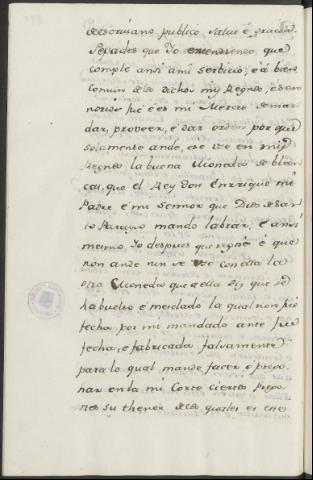 de escrivano publico. Salud é gracia.
Sepades que Yo entendiendo, que
cumple ansi ami servicio, é á bien
comun delos dichos mis Regnos, é Seno
norios fué é es mi Merced deman
dar, proveer, é dar orden por que
solamente ande, e se use en mis
Regnos la buena Moneda de blan
cas, que el Rey don Enrrique mi
Padre é mi Sennor que Dios dé San
to Parayso mando labrar, é ansi
mesmo Yo despues que regné é que
non ande nin se use con ella la
otra Moneda que a ella diz que se
ha buelto é mesclado la qual non fué
fecha por mi mandado ante fué
fecha, é fabricada falsamente
para lo qual mandé facer é prego
nar en la mi Corte ciertos prego
nes su thenor delos quales es este